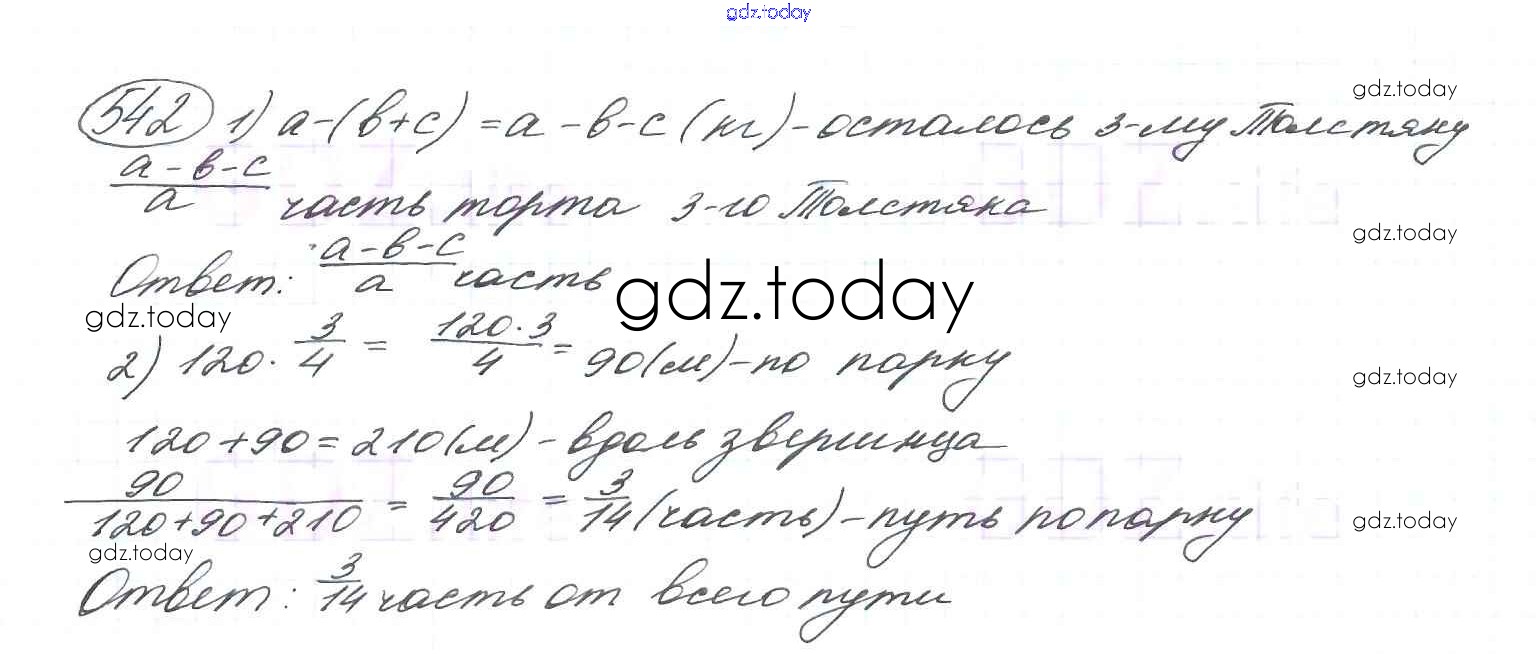 gdz.today
gdz.today
542 1) a-(в+c) = a-в-c (кг) - осталось 3-му Толстяку
(a-в-c)/a часть торта 3-го Толстяка
gdz.today
Ответ: (a-в-c)/a часть
gdz.today
gdz.today
2) 120 · 3/4 = (120·3)/4 = 90(м) - по парку
gdz.today
120+90=210(м) - вдоль зверинца
90/(120+90+210) = 90/420 = 3/14 (часть) - путь по парку
gdz.today
gdz.today
Ответ: 3/14 часть от всего пути